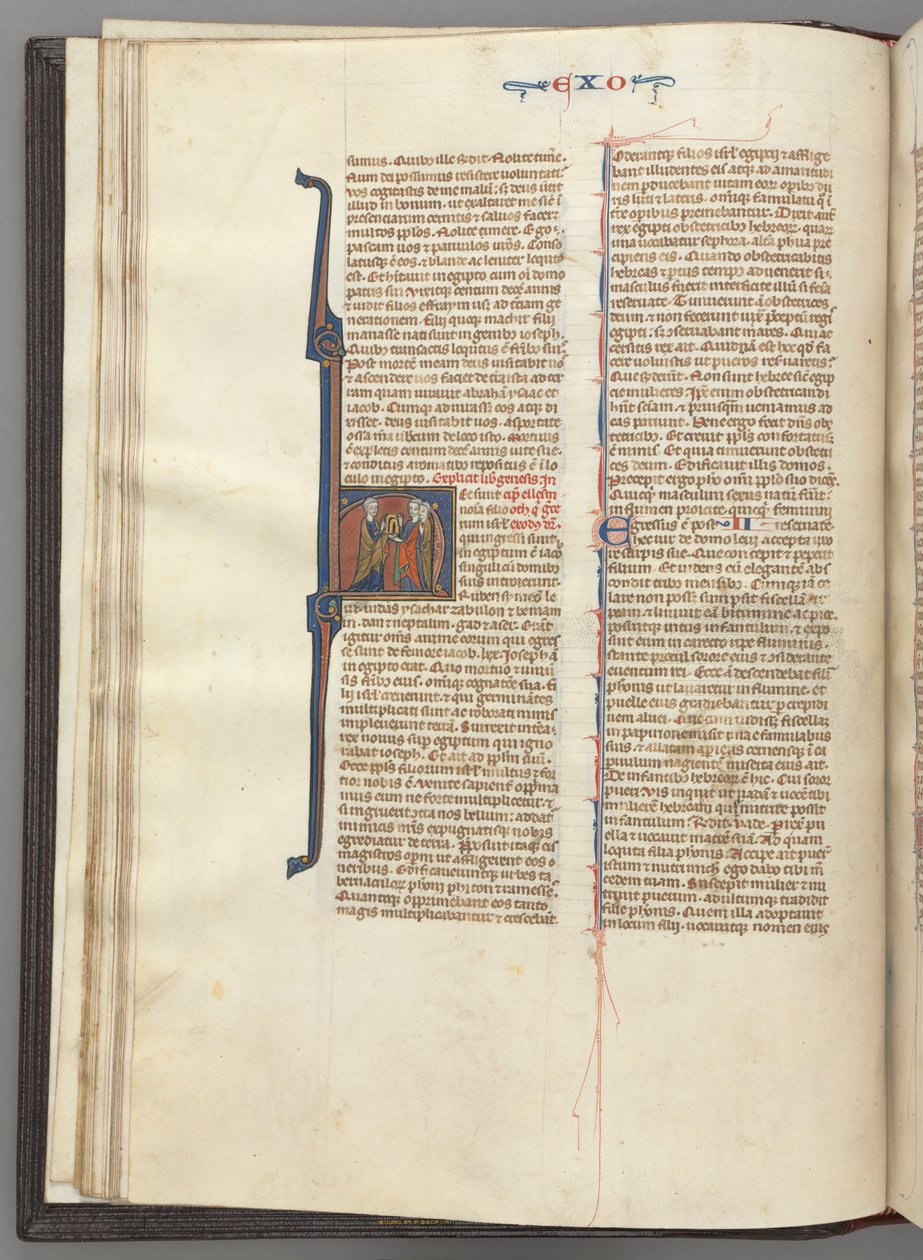 EXO
sumus. Quib; ille rñdit. Nolite timẽ.
Num dei possumus resistere uoluntati.
Vos cogitastis de me malũ; sꝫ deus ũtit
illud in bonum. ut exaltaret me sic̃ ĩ
presenciarum cernitis ⁊ saluos faceret
multos pp̃los. Nolite timere. Ego
pascam uos ⁊ paruulos ur̃os. Conso
latusqꝫ ẽ eos. ⁊ blande ac leniter locut᷒
est. Et hĩtauit in egipto cum oĩ domo
patris sui. Vixitqꝫ centum decẽ annis
⁊ uidit filios effraym usqꝫ ad tc̃iam ge
nerationem. Filii quoqꝫ machir filii
manasse nati sunt in genib; ioseph.
Quib; transactis locutus ẽ fr̃ib; suis
Post mortẽ meam deus uisitabit uos
⁊ ascendere uos faciet de tr̃a ista ad ter
ram quam iurauit abrahã ysaac et
iacob. Cumqꝫ adiurass; eos atqꝫ di
xisset. deus uisitabit uos. asportate
ossa m̃a uobcum de loco isto. Mortuus
ẽ expletis centum decẽ annis uite sue.
⁊ conditus aromatib; repositus ẽ ĩ lo
culo in egipto. Explicit lib̾ genesis. In
Ec sunt cip̃ ellesm
noĩa filio oth q̃ g̃ce
rum isr̃l exodꝰ dr̃.
qui ingressi sunt
in egiptum ẽ iaco
singuli cũ domib;
suis introierunt.
Ruben symeõ le
ui. iudas ysachar zabulon ⁊ beniam
in. dan ⁊ neptalim. gad ⁊ aser. Erãt
igitur om̃s anime eorum qui egres
se sunt de femore iacob. lxx. Ioseph aũ
in egipto erat. Quo mortuo ⁊ uniũ
sis fr̃ib; eius. omniqꝫ cognatõe sua. Fi
lii isr̃l creuerunt. ⁊ qui germinãtes
multiplicati sunt ac roborati nimis
impleuerunt terrã. Surrexit int̾ea
rex nouus sup̱ egiptum qui igno
rabat ioseph. Et ait ad pp̃lm suũ.
Ecce pp̃ls filiorum isr̃l multus ⁊ for
tior nobis ẽ. Venite sapient̾ opp̃ma
mus eum ne forte multiplicetur. ⁊
si ingruerit ꝯtra nos bellum: addat̾
inimicis nr̃is expugnatisqꝫ nobis
egrediatur de terra. P̾posuit itaqꝫ eis
magistros op̱um ut affligerent eos o
neribus. Edificaueruntqꝫ urbes ta
bernaculoꝝ pharaoni phiton ⁊ ramesse.
Quantoqꝫ opprimebant eos tanto
magis multiplicabantur ⁊ crescebãt.
Oderantqꝫ filios isr̃l egiptii ⁊ afflige
bant illudentes eis atqꝫ ad amaritudi
nem ꝑducebant uitam eoꝝ opib; du
ris luti ⁊ lateris. omniqꝫ famulatu q̃ ĩ
tr̃e opib; premebantur. Dixit aut̃
rex egipti obstetricib; hebreoꝝ. quaꝝ
una uocabatur sephora. alt̾a phua pre
cipiens eis. Quando obstetricabitis
hebreas ⁊ ꝑtus tempꝰ aduenerit si
masculus fuerit interficite illũ si feĩa
reseruate. Timuerunt aũ obstetrices
deum. ⁊ non fecerunt iux̾ p̾ceptũ regis
egipti: sꝫ ꝯseruabant mares. Quib; ac
cersitis rex ait. Quidnã est hoc qd̾ fa
cere uoluistis ut pueros res̾uaretis?
Que rñderũt. Non sunt hebree sic̃ egip
cie mulieres. Ip̃e enim obstetricandi
hñt sciẽam. ⁊ priusqm̃ ueniamus ad
eas pariunt. Bene ergo fecit dñs obs
tetricib;. Et creuit pp̃ls confortatusqꝫ
ẽ nimis. Et quia timuerunt obstetri
ces deum. Edificauit illis domos.
Precepit ergo pharao om̃i pp̃lo suo dices̃.
Quicqꝫ masculini sexus natũ fuit:
in flumen proicite quicqꝫ feminini
Egressus ẽ post II reseruate
hec uir de domo leui accepta uxo
re stirpis sue. Que concepit ⁊ peperit
filium. Et uidens eũ elegantẽ abs
condit tribꝰ mensibꝰ. Cumqꝫ iã ce
lare non poss; sumpsit fiscellã
peam. ⁊ liniuit eã bitumine ac pice.
posuitqꝫ intus infantulum. ⁊ expo
suit eum in carecto ripe fluminis.
stante procul sorore eius ⁊ ꝯsiderante
euentum rei. Ecce aũ descendebat filia
pharonis ut lauaretur in flumine. et
puelle eius gradiebantur ꝑ crepidi
nem aluei. Que cum uidiss; fiscellam
in papirione misit unã e famulabus
suis. ⁊ allatam apiens cernensqꝫ ĩ ea
paruulum uagientẽ miserta eius ait.
De infantib; hebreoꝝ ẽ hic. Cui soror
pueri. Vis inquit ut uadã ⁊ uocẽ tibi
mulierẽ hebreãm que nutrire possit
infantulum? Rñdit. Vade. Prrexit pu
ella ⁊ uocauit matrẽ suã. Ad quam
locuta filia pharonis. Accipe ait puer̃
istum ⁊ nutri mĩchi. ego dabo tibi m̃
cedem tuam. Suscepit mulier ⁊ nu
triuit puerum. adultumqꝫ tradidit
filie pharonis. Quem illa adoptauit
in locum filii. uocauitqꝫ nomen eius
BOUND BY F. BEDFORD